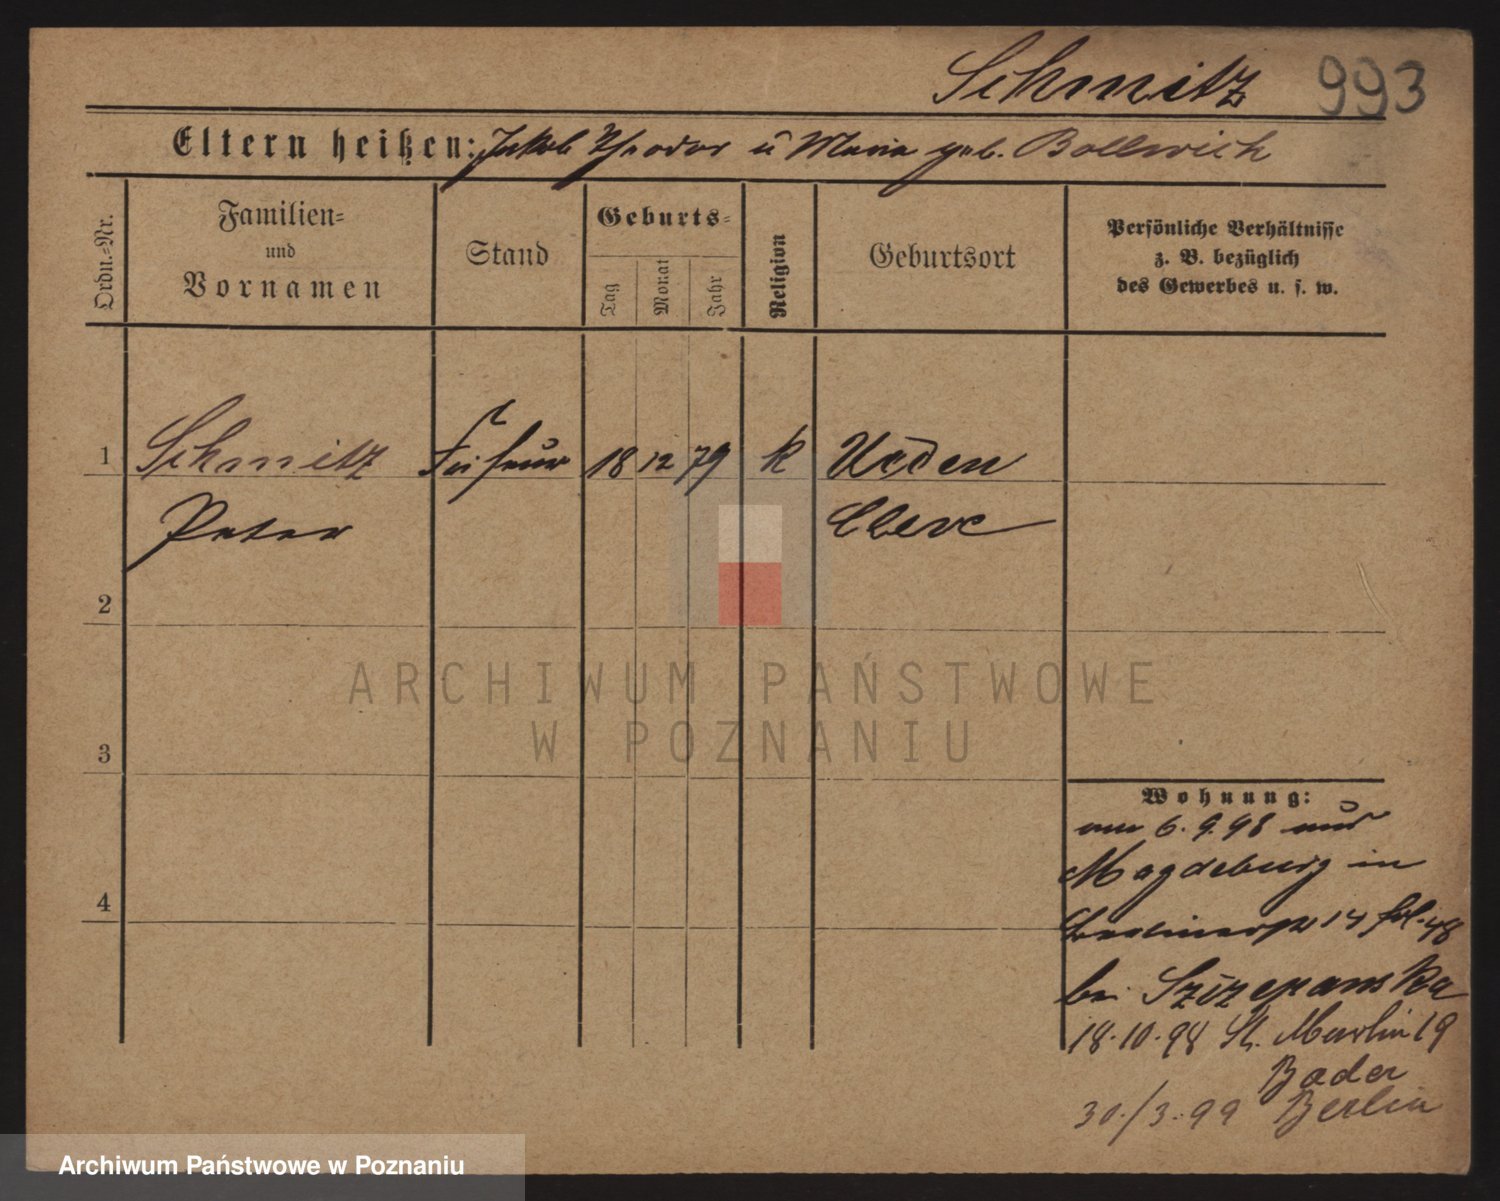 Schmitz 993
Eltern heißen: Jakob Theodor ū Maria geb. Bollwich
Ordn.-Nr.
Familien-
und
Vornamen
Stand
Geburts-
Tag
Monat
Jahr
Religion
Geburtsort
Persönliche Verhältnisse
z. B. bezüglich
des Gewerbes u. s. w.
1 Schmitz Friseur 18 12 79 k Ueden
Peter Cleve
2
3
4
ARCHIWUM PAŃSTWOWE
W POZNANIU
Wohnung:
am 6.9.98 aus
Magdeburg in
Berlinerstr 14
bei Szczepanska
18.10.98 St. Martin 19
Bader
30./3.99 Berlin
Archiwum Państwowe w Poznaniu